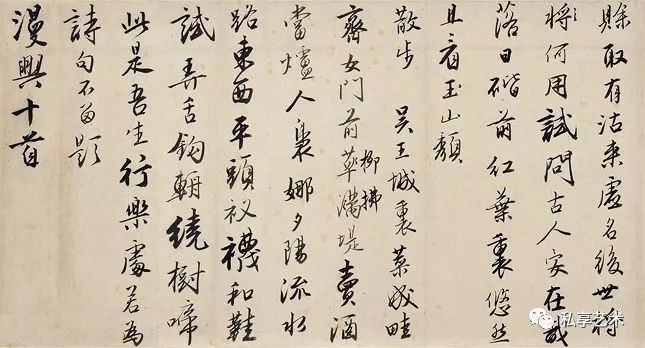 賖取有沽來虛名後世將
將何用試問古人安在哉
落日階前紅葉裏悠然
且看玉山頹
散步 吳王城裏菜成畦
齊女門前草滿堤賣酒
柳拂
當爐人裊娜夕陽流水
路東西平頭衩襪和鞋
試弄舌鉤輈繞樹啼
此是吾生行樂處若為
詩句不留題
漫興十首
私享艺术